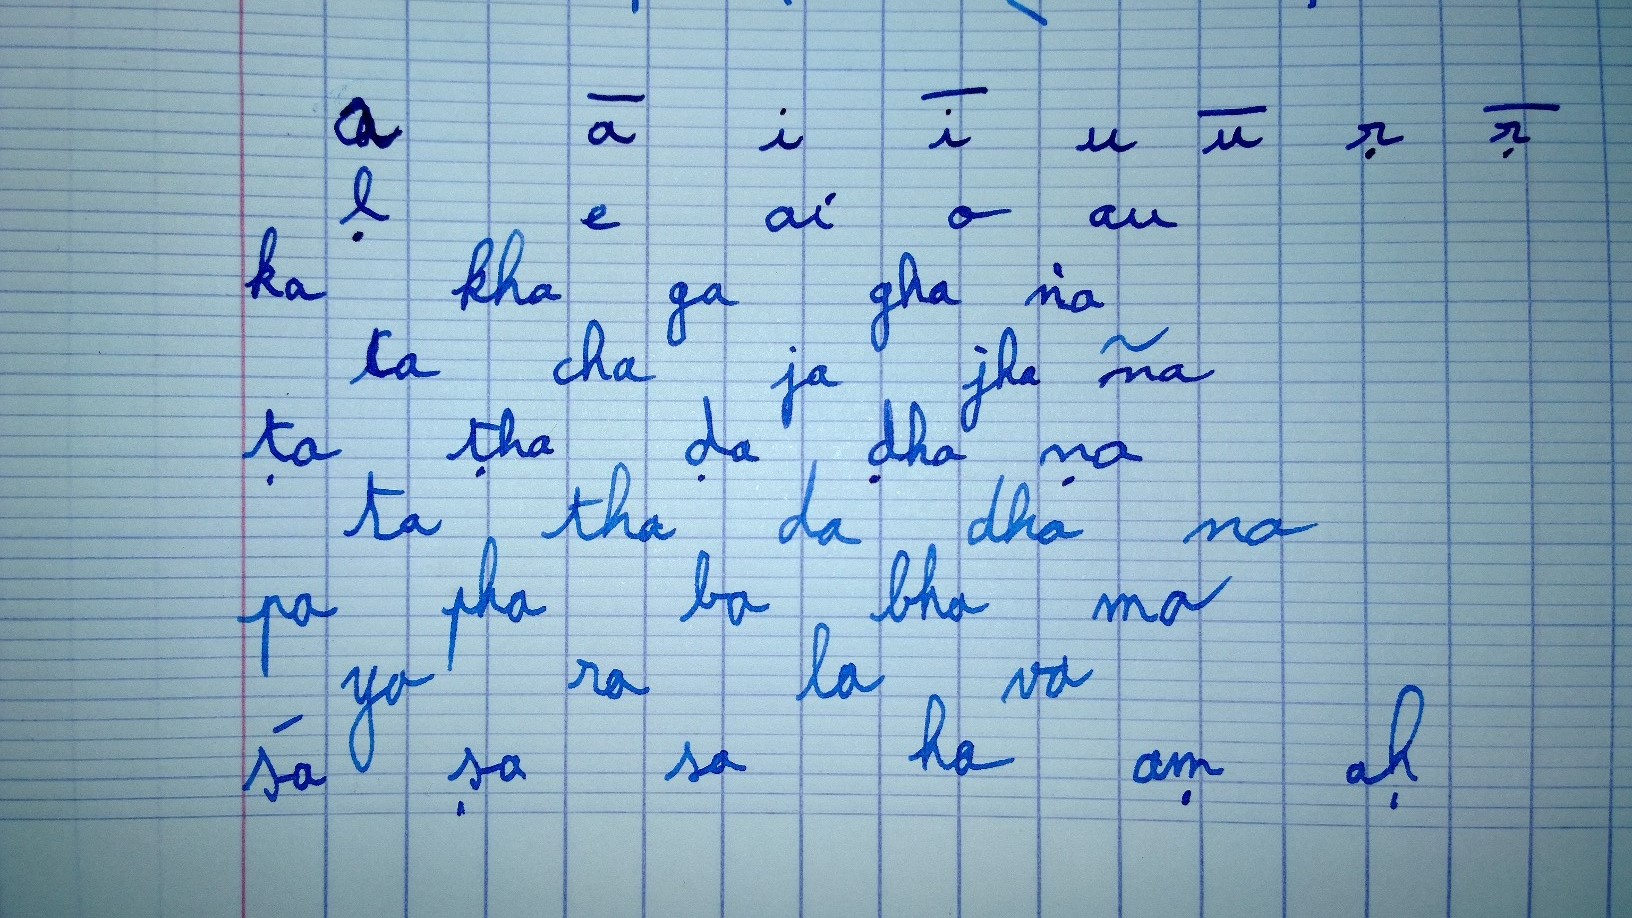 a ā i ī u ū ṛ ṝ
ḷ e ai o au
ka kha ga gha ṅa
ca cha ja jha ña
ṭa ṭha ḍa ḍha ṇa
ta tha da dha na
pa pha ba bha ma
ya ra la va
śa ṣa sa ha aṃ aḥ